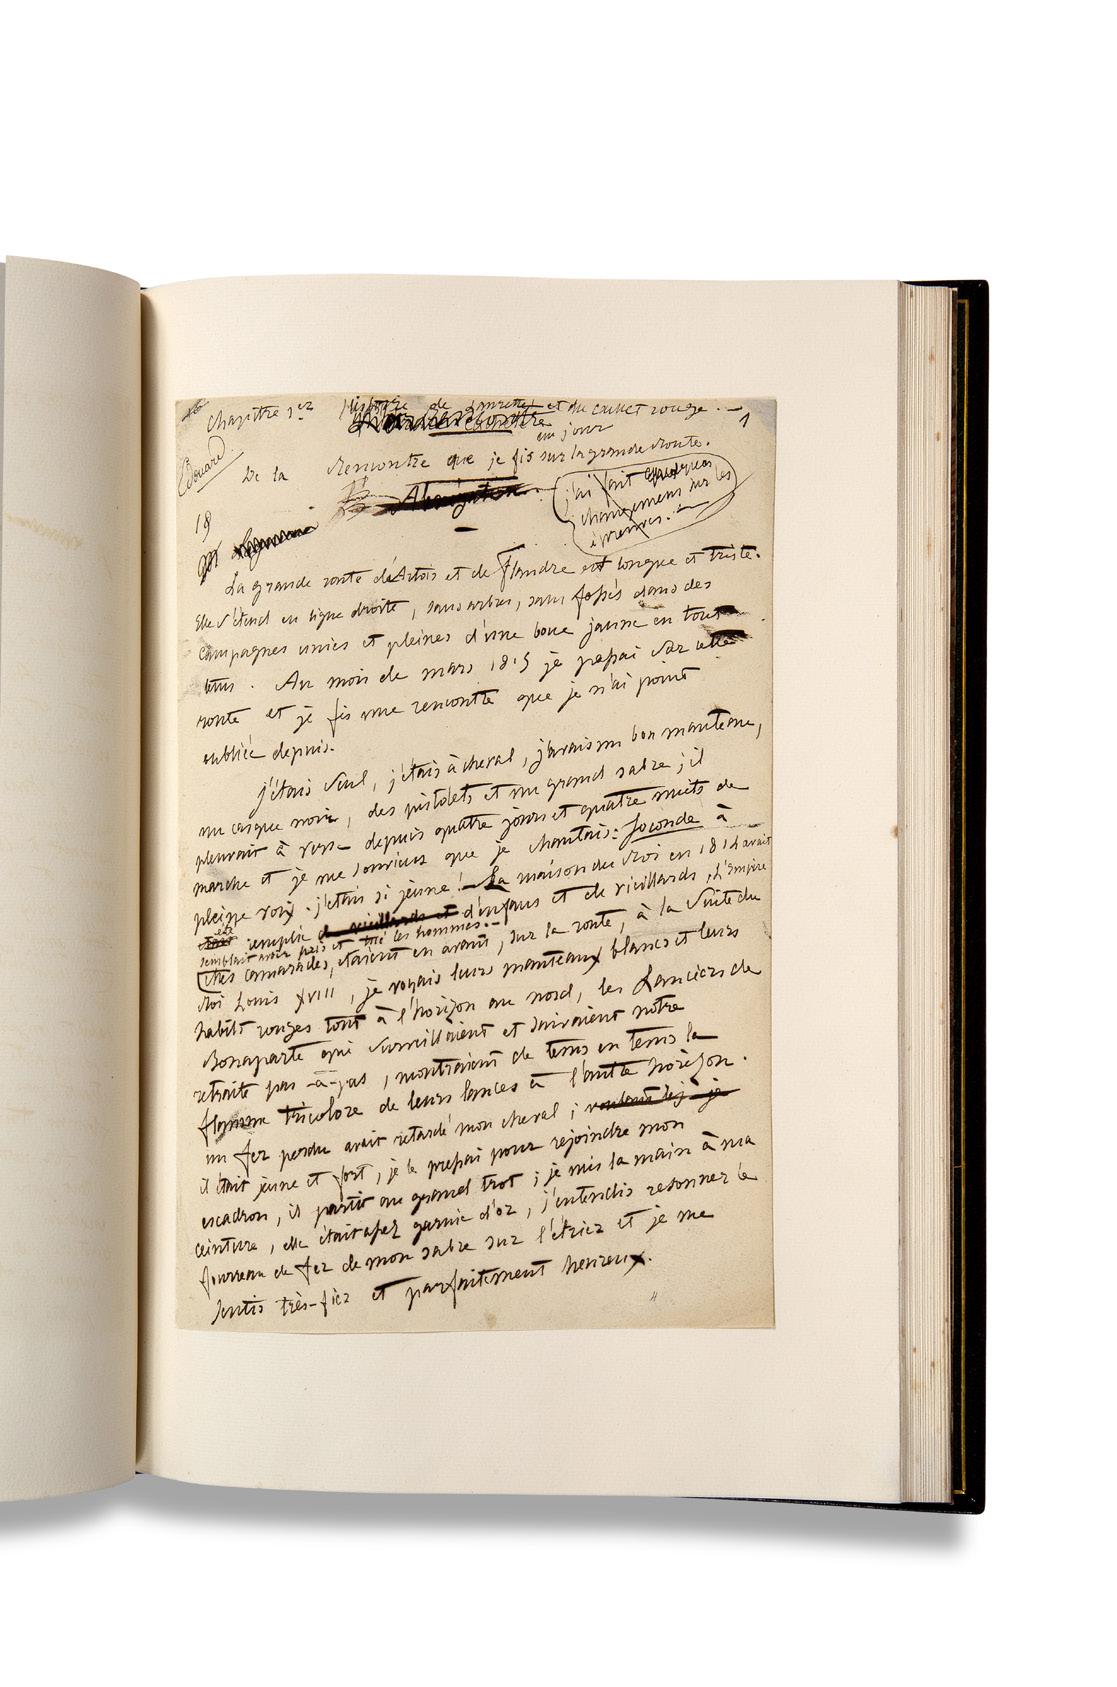 Chapitre 1er Histoire de Laurette et du cachet rouge. — 1
Edouard
De la rencontre que je fis un jour sur la grande route.
Abnégation.
j'ai fait quelques
changemens sur les
épreuves.
18
La grande route d'Artois et de Flandre est longue et triste.
Elle s'étend en ligne droite, sans arbres, sans fossés dans des
campagnes unies et pleines d'une boue jaune en tout
tems. Au mois de mars 1815 je passai sur cette
route et je fis une rencontre que je n'ai point
oubliée depuis.
j'étais seul, j'étais à cheval, j'avais un bon manteau,
un casque noir, des pistolets et un grand sabre ; il
pleuvait à verse depuis quatre jours et quatre nuits de
marche et je me souviens que je chantais : Joconde à
pleine voix. j'étais si jeune ! — La maison du Roi en 1814 avait
été remplie de vieillards et d'enfans et de vieillards, L'Empire
semblait avoir pris et tué les hommes. —
Mes camarades, étaient en avant, sur la route, à la suite du
Roi Louis XVIII, je voyais leurs manteaux blancs et leurs
habits rouges tout à l'horizon au nord, les Lanciers de
Bonaparte qui surveillaient et suivaient notre
retraite pas-à-pas, montraient de tems en tems la
flamme tricolore de leurs lances à l'autre horizon.
un fer perdu avait retardé mon cheval ;
il était jeune et fort, je le pressai pour rejoindre mon
escadron, il partit au grand trot ; je mis la main à ma
ceinture, elle était assez garnie d'or, j'entendis resonner le
fourreau de fer de mon sabre sur l'étrier et je me
sentis très-fier et parfaitement heureux.